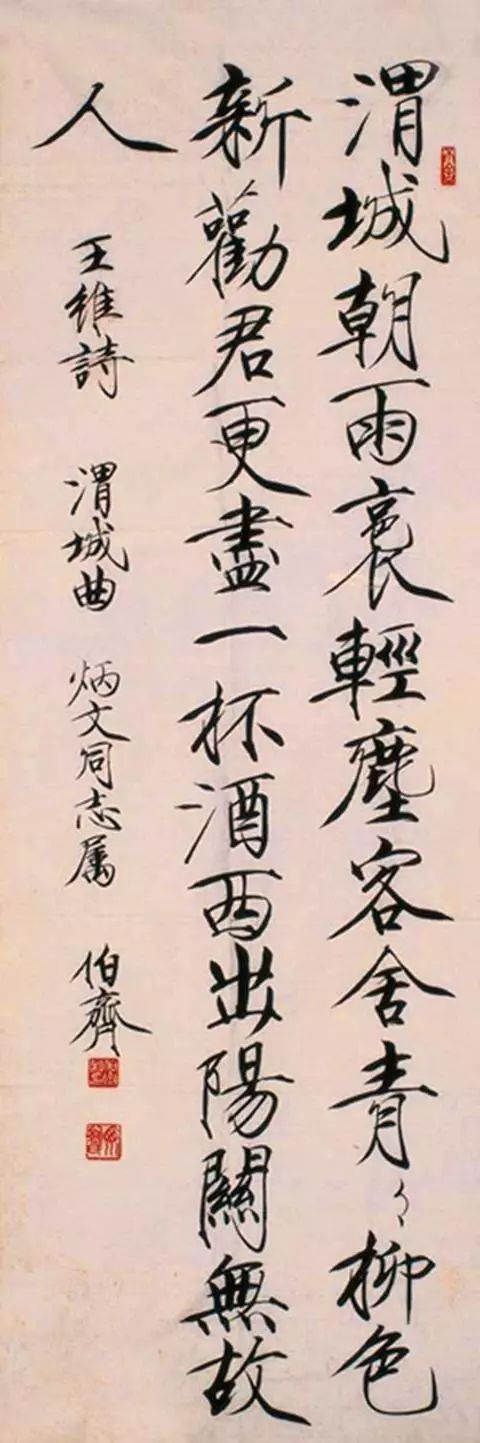 渭城朝雨裛輕塵客舍青々柳色
新勸君更盡一杯酒西出陽關無故
人 王維詩 渭城曲 炳文同志属 伯齊